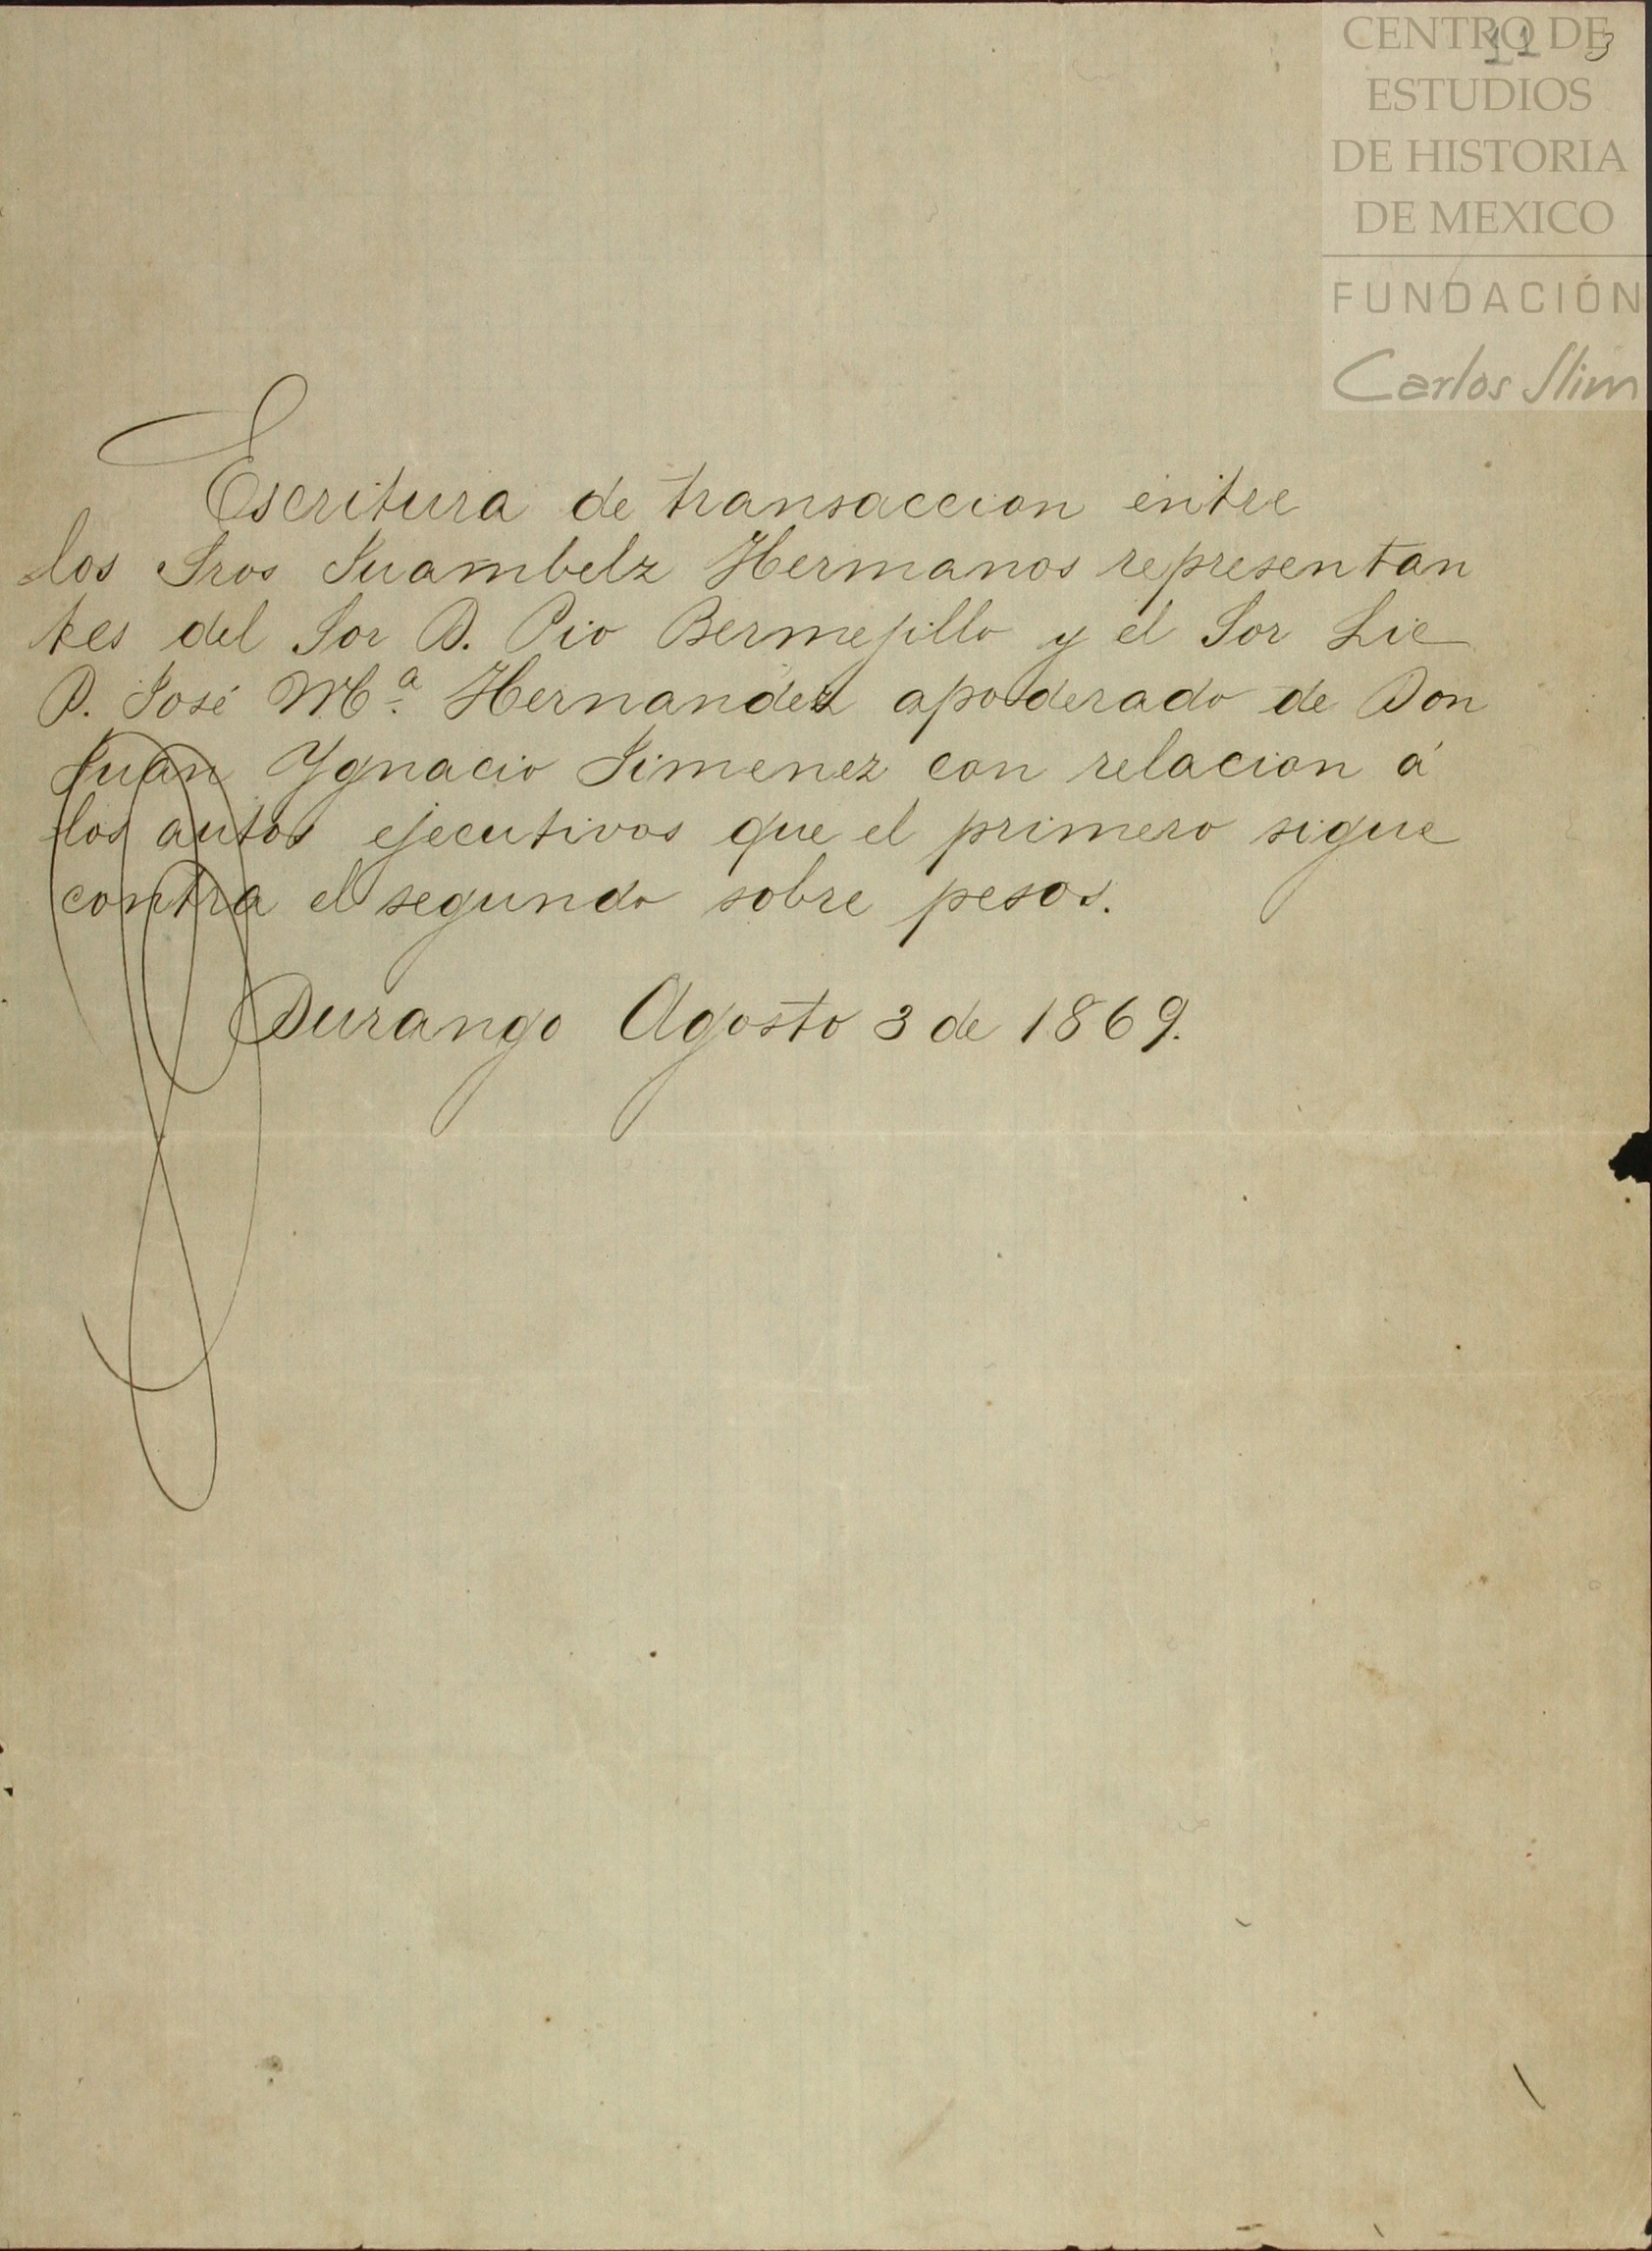 CENTRO DE
ESTUDIOS
DE HISTORIA
DE MEXICO
FUNDACIÓN
Carlos Slim
11 3
Escritura de transaccion entre
los Sros Juambelz Hermanos representan
tes del Sor D. Pio Bermejillo y el Sor Lic
D. José Mª Hernandez apoderado de Don
Juan Ygnacio Jimenez con relacion á
los autos ejecutivos que el primero sigue
contra el segundo sobre pesos.
Durango Agosto 3 de 1869.